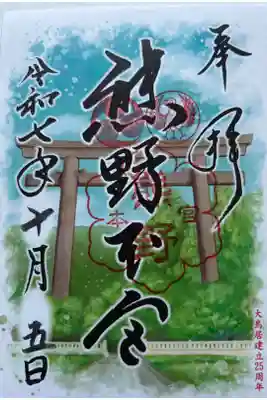 奉拝
大鳥居建立25周年
熊野本宮
令和七年十月五日